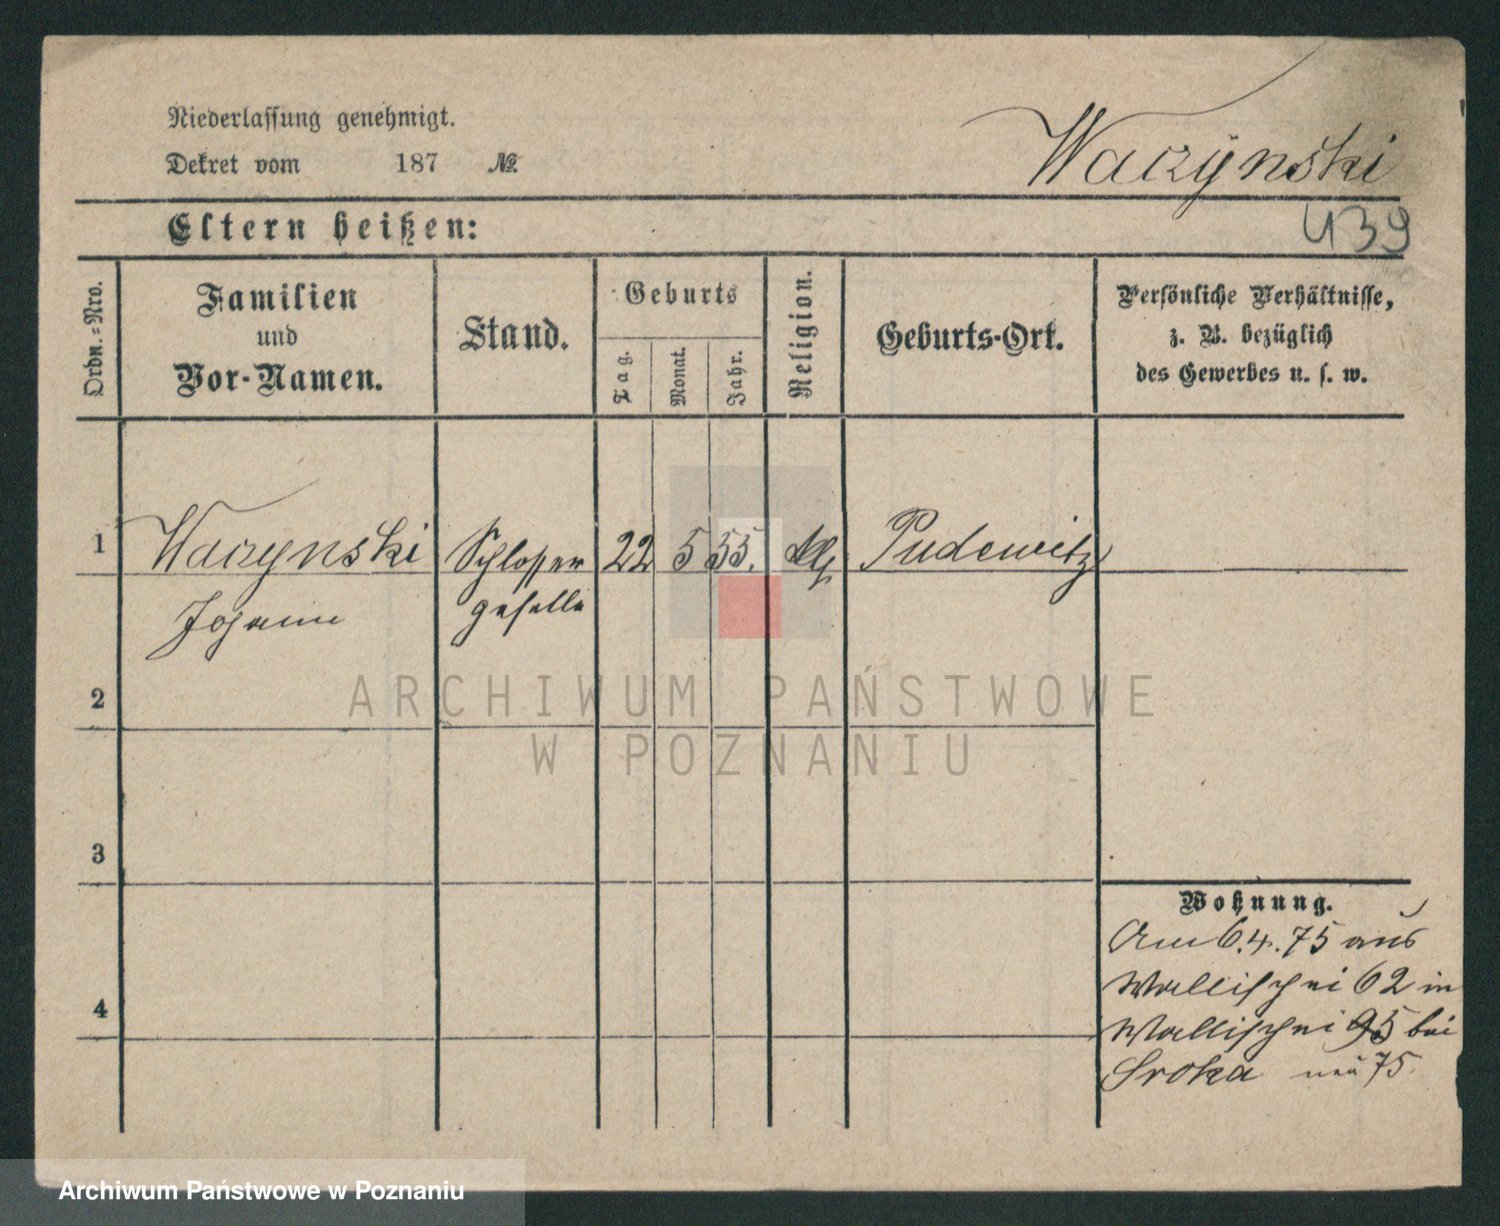 Niederlassung genehmigt.
Dekret vom 187 №
Waczynski
439
Eltern heißen:
Ordn.-Nro.
Familien
und
Vor-Namen.
Stand.
Geburts
Tag.
Monat.
Jahr.
Religion.
Geburts-Ort.
Persönliche Verhältnisse,
z. B. bezüglich
des Gewerbes u. s. w.
1 Waczynski Schlosser 22 5 55. Pudewitz
Johann geselle
2
ARCHIWUM PAŃSTWOWE
W POZNANIU
3
Wohnung.
Am 6.4.75 aus
Wallischei 62 in
4
Wallischei 95 bei
Sroka neu 75.
Archiwum Państwowe w Poznaniu